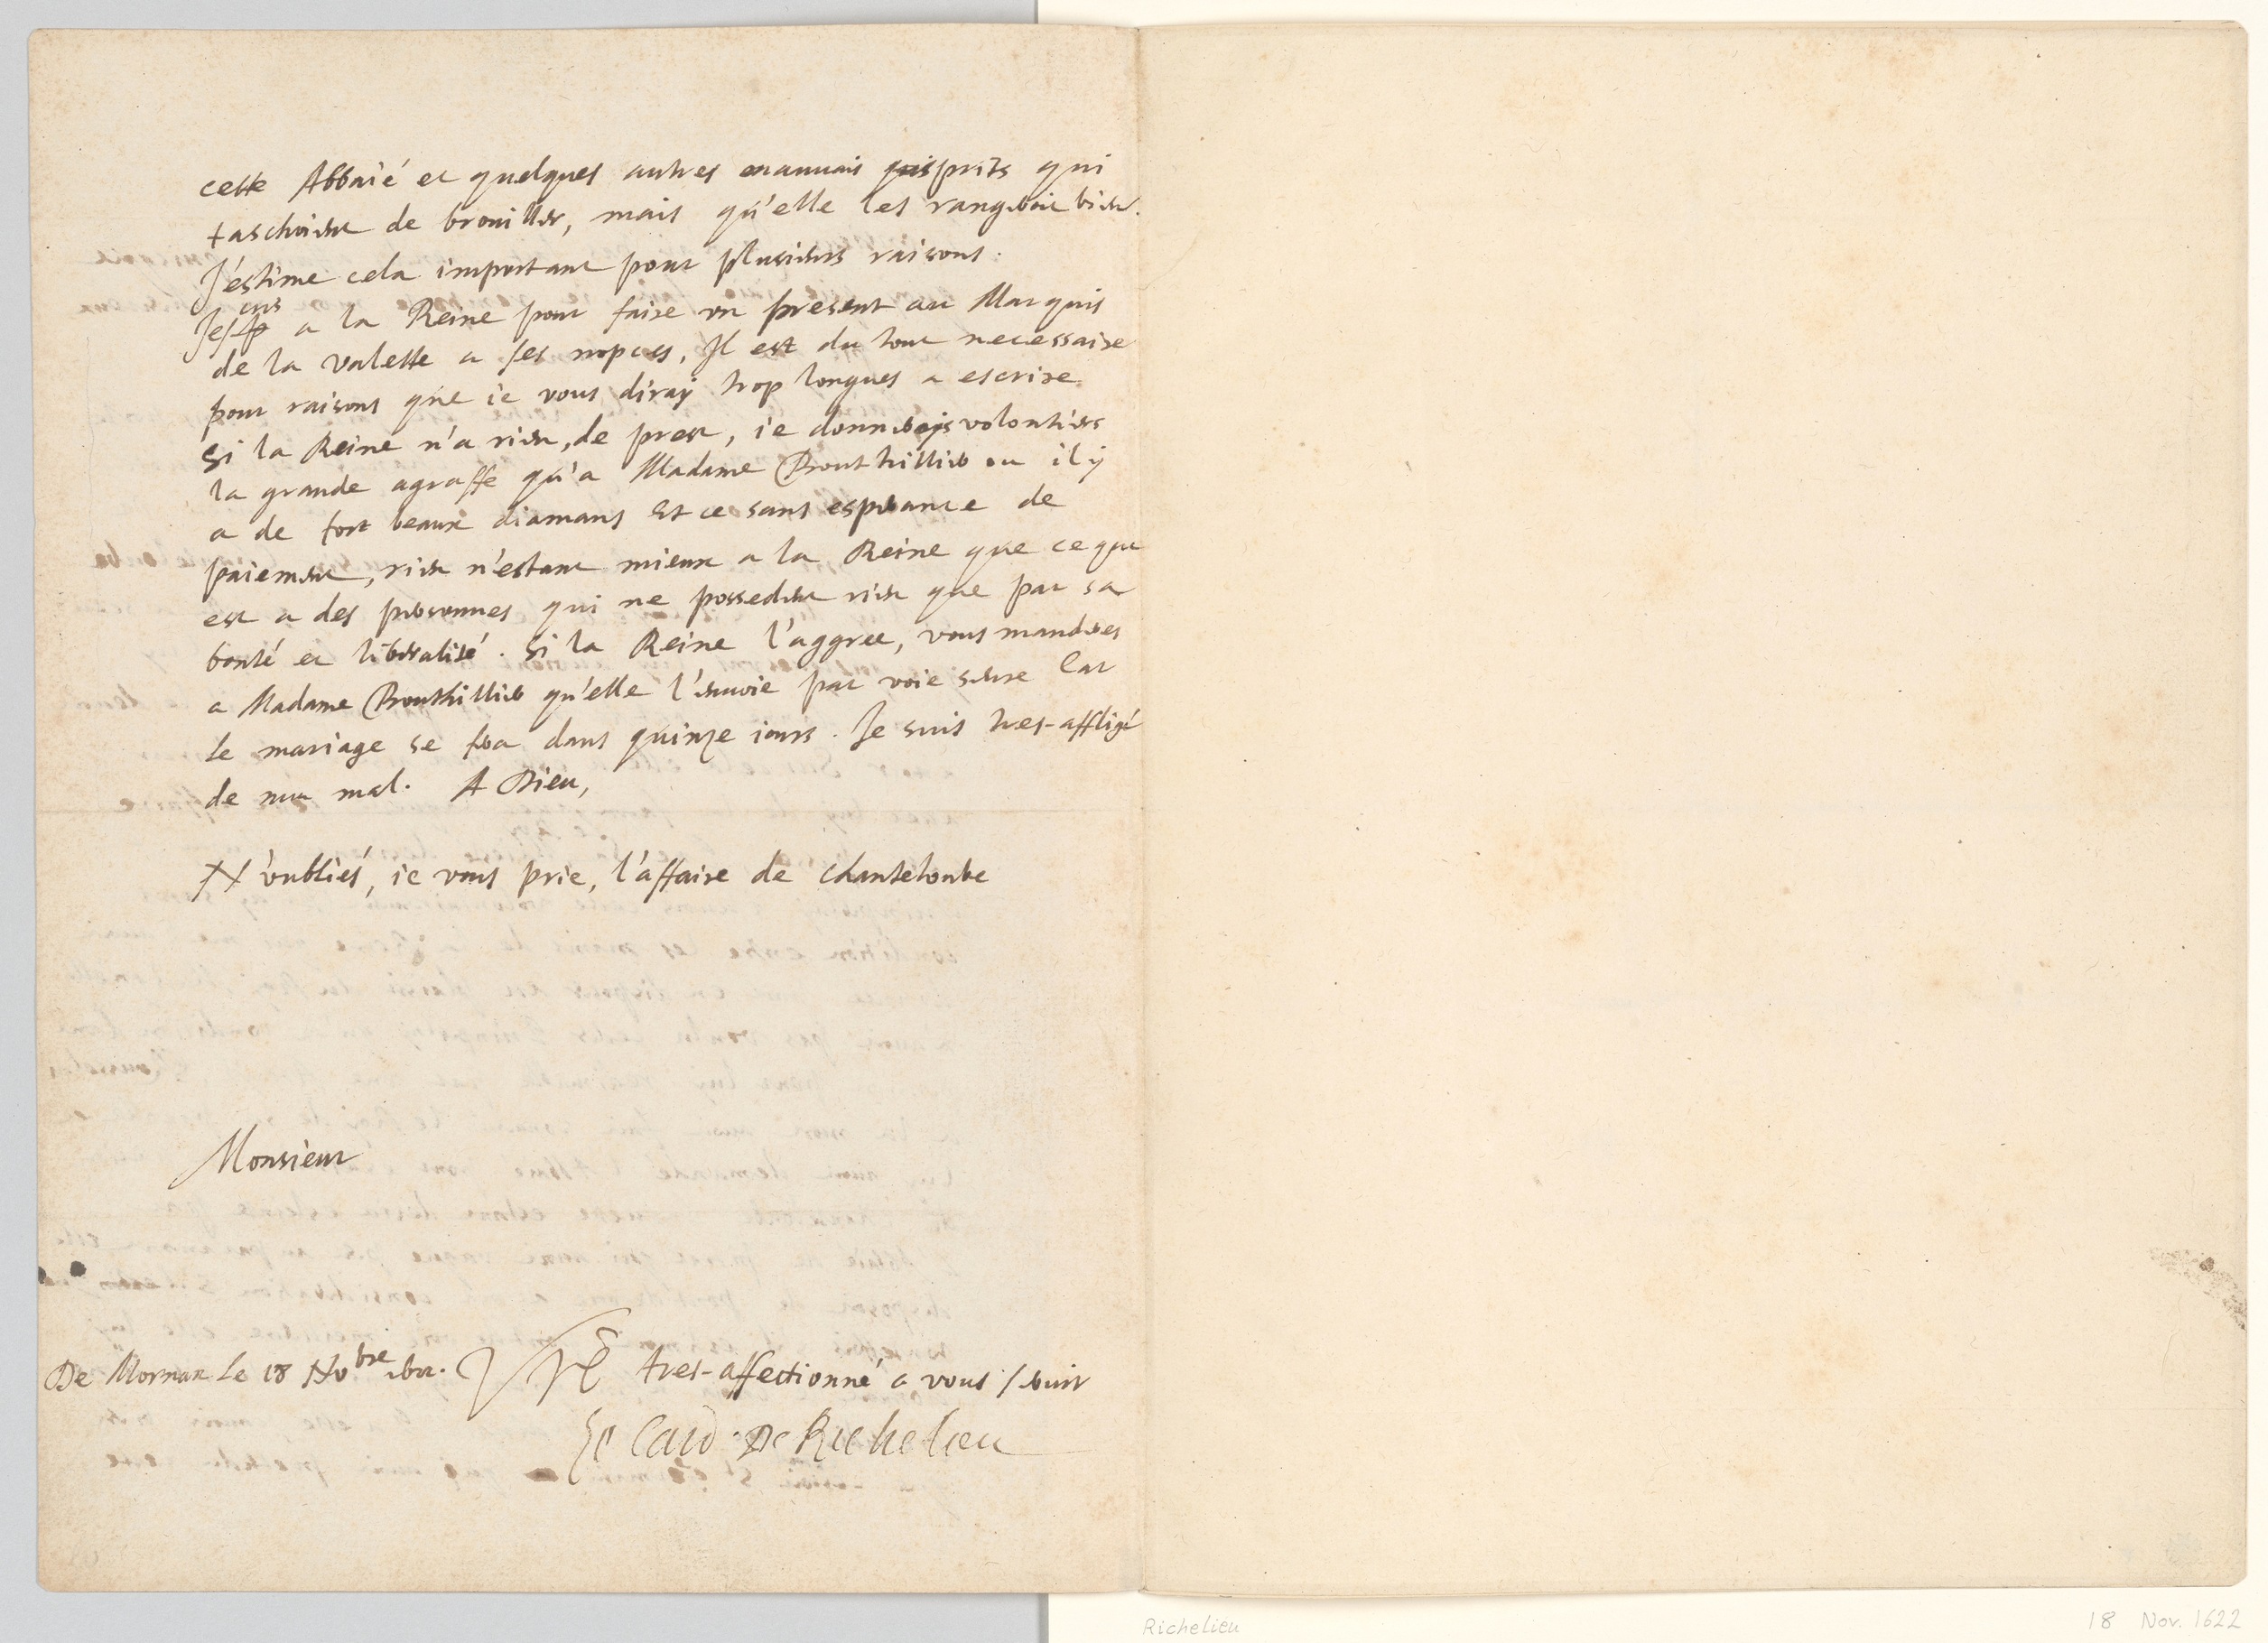 cette Abbaïé et quelques autres mauuais esprits qui
taschoient de brouiller, mais qu'elle les rangeroit bien.
J'éstime cela important pour plusieurs raisons.
Jescris a la Reine pour faire vn present au Marquis
de la Valette a ses nopces, Il est du tout necessaire
pour raisons que ie vous diray trop longues a escrire.
Si la Reine n'a rien, de prest, i'e donnerois volontiers
la grande agraffe qu'a Madame Bouthillier ou il y
a de fort beaux diamans Et ce sans esperance de
paiement, rien n'estant mieux a la Reine que ce qui
est a des personnes qui ne possedent rien que par sa
bonté et liberalité. Si la Reine l'aggree, vous manderes
a Madame Bouthillier qu'elle l'enuoie par voie seure Car
le mariage se fera dans quinze iours. Je suis tres-affligé
de mal. A Dieu,
N'oubliés, ie vous prie, l'affaire de Chanteloube
Monsieur
De Mornax Le 18 Nobre
Vre tres-affectionné a vous seruir
Le Card. De Richelieu
Richelieu
18 Nov. 1622